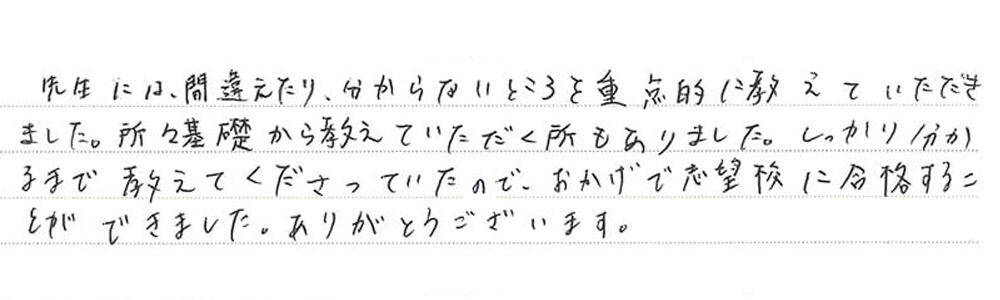 先生には、間違えたり、分からないところを重点的に教えていただき
ました。所々基礎から教えていただく所もありました。しっかり分か
るまで教えてくださっていたので、おかげで志望校に合格するこ
とができました。ありがとうございます。